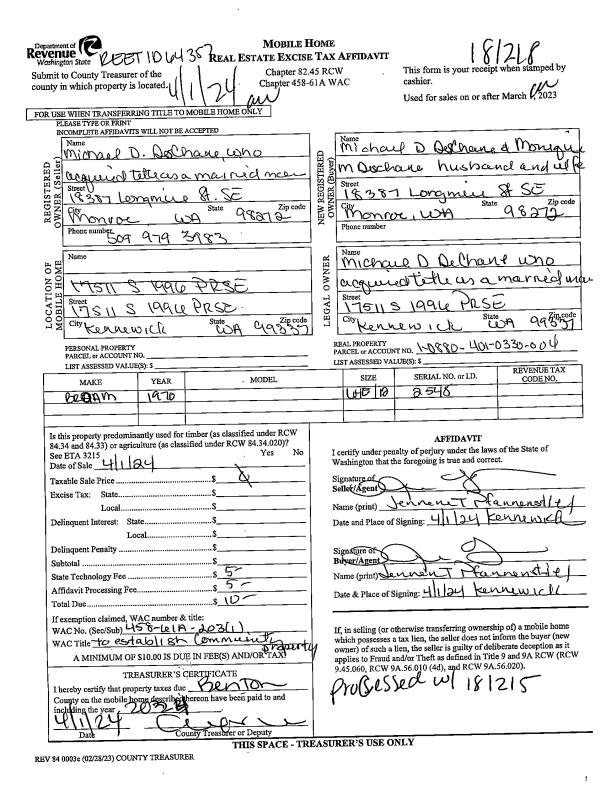 Department of
Revenue
Washington State
REET ID 64357
MOBILE HOME
REAL ESTATE EXCISE TAX AFFIDAVIT
181218
Submit to County Treasurer of the
county in which property is located.
4/1/24
Chapter 82.45 RCW
Chapter 458-61A WAC
This form is your receipt when stamped by
cashier.
Used for sales on or after March 1, 2023
FOR USE WHEN TRANSFERRING TITLE TO MOBILE HOME ONLY
PLEASE TYPE OR PRINT
INCOMPLETE AFFIDAVITS WILL NOT BE ACCEPTED
REGISTERED
OWNER (Seller)
Name
Michael D. DesChane, who
acquired title as a married man
Street
18387 Longmire St. SE
City State Zip code
Monroe WA 98272
Phone number
509 979 3983
NEW REGISTERED
OWNER (Buyer)
Name
Michael D DesChane & Monique
M Deschane husband and wife
Street
18387 Longmire St SE
City State Zip code
Monroe, WA 98272
Phone number
LOCATION OF
MOBILE HOME
Name
17511 S 1996 PRSE
Street
17511 S 1996 PRSE
City State Zip code
Kennewick WA 99337
LEGAL OWNER
Name
Michael D DeChane who
acquired title as a married man
Street
17511 S 1996 PRSE
City State Zip code
Kennewick WA 99337
PERSONAL PROPERTY
PARCEL or ACCOUNT NO.
LIST ASSESSED VALUE(S): $
REAL PROPERTY
PARCEL or ACCOUNT NO. 1-0880-401-0330-004
LIST ASSESSED VALUE(S): $
MAKE YEAR MODEL SIZE SERIAL NO. or I.D. REVENUE TAX
CODE NO.
1970 2548
Is this property predominantly used for timber (as classified under RCW
84.34 and 84.33) or agriculture (as classified under RCW 84.34.020)?
See ETA 3215 Yes No
Date of Sale 4/1/24
Taxable Sale Price $
Excise Tax: State $
Local $
Delinquent Interest: State $
Local $
Delinquent Penalty $
Subtotal $
State Technology Fee $ 5-
Affidavit Processing Fee $ 5-
Total Due $ 10-
If exemption claimed, WAC number & title:
WAC No. (Sec/Sub) 458-61A-203(1)
WAC Title to establish community
property
A MINIMUM OF $10.00 IS DUE IN FEE(S) AND/OR TAX!
TREASURER'S CERTIFICATE
I hereby certify that property taxes due Benton
County on the mobile home described hereon have been paid to and
including the year 2024
4/1/24
Date County Treasurer or Deputy
AFFIDAVIT
I certify under penalty of perjury under the laws of the State of
Washington that the foregoing is true and correct.
Signature of
Seller/Agent
Name (print) Jennen T Pfannenstiel
Date and Place of Signing: 4/1/24 Kennewick
Signature of
Buyer/Agent
Name (print) Jennen T Pfannenstiel
Date & Place of Signing: 4/1/24 Kennewick
If, in selling (or otherwise transferring ownership of) a mobile home
which possesses a tax lien, the seller does not inform the buyer (new
owner) of such a lien, the seller is guilty of deliberate deception as it
applies to Fraud and/or Theft as defined in Title 9 and 9A RCW (RCW
9.45.060, RCW 9A.56.010 (4d), and RCW 9A.56.020).
Processed w/ 181215
THIS SPACE - TREASURER'S USE ONLY
REV 84 0003e (02/28/23) COUNTY TREASURER